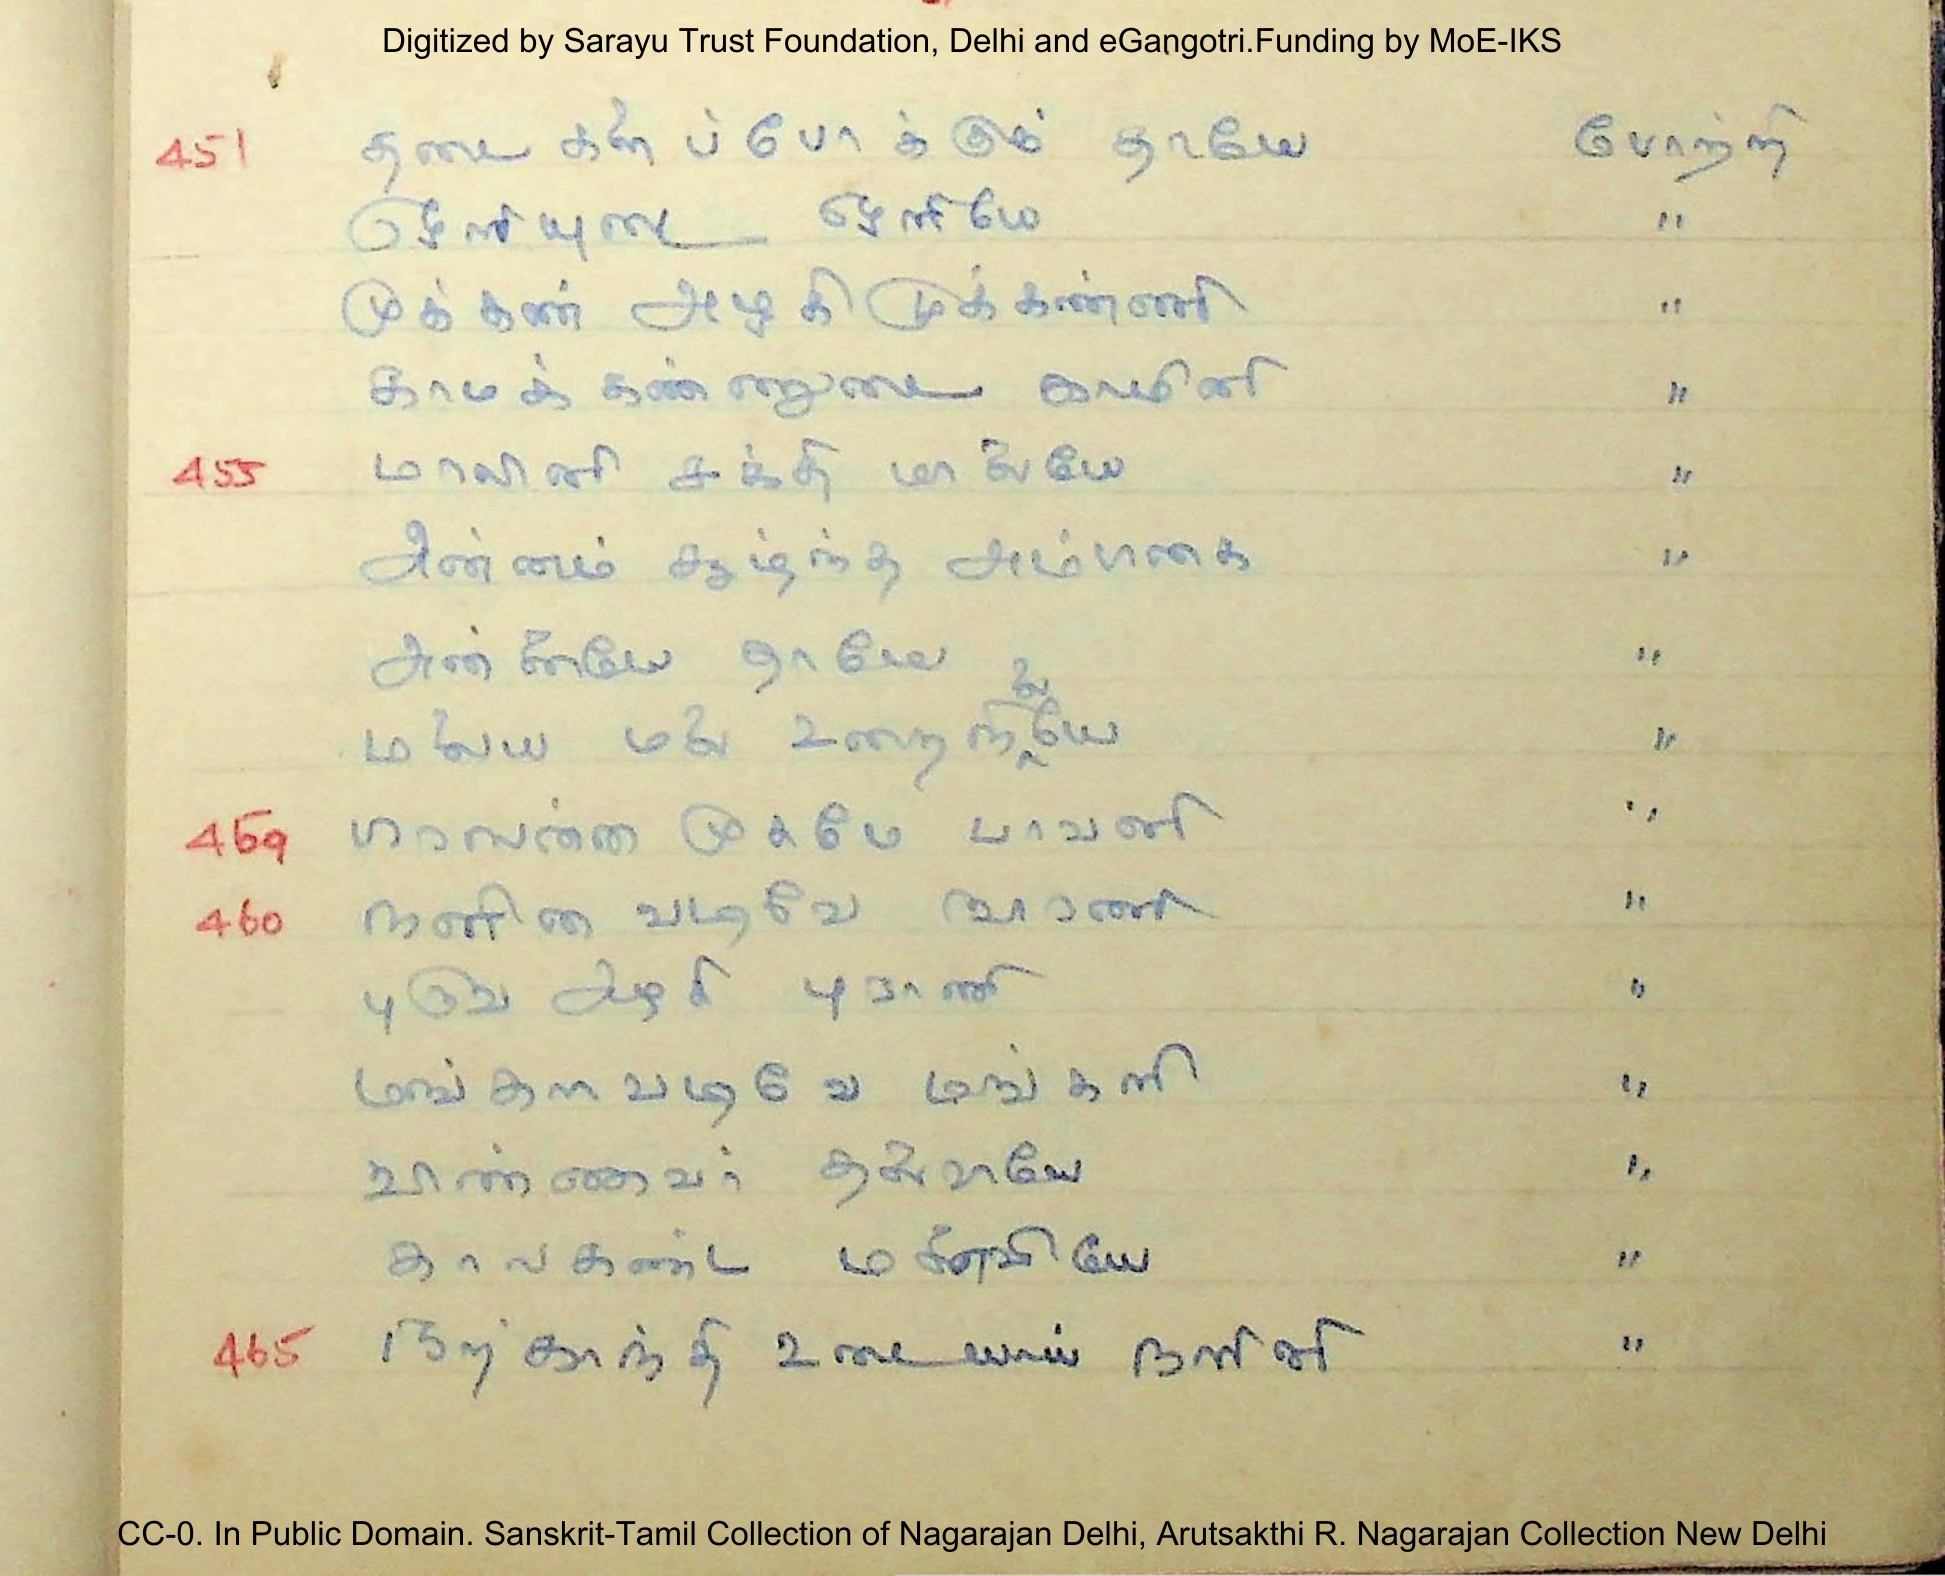 Digitized by Sarayu Trust Foundation, Delhi and eGangotri.Funding by MoE-IKS
451 தடைகளைப்போக்கும் தாயே போற்றி
"
முக்கண் அழகி முக்கண்ணி "
காமக் கண்ணுடை காமினி "
455 மாலினி சக்தி மாலையே "
அன்னம் சூழ்ந்த அம்பிகை "
அன்னையே தாயே "
மலைய மலை உறை "
459 முகமே பாவனி "
460 நளின வடிவே "
புருவ அழகி புராணி "
மங்கள வடிவே மங்களி "
விண்ணவர் தலைவியே "
காலகண்ட மனைவியே "
465 காந்தி உடையாய் நளினி "
CC-0. In Public Domain. Sanskrit-Tamil Collection of Nagarajan Delhi, Arutsakthi R. Nagarajan Collection New Delhi